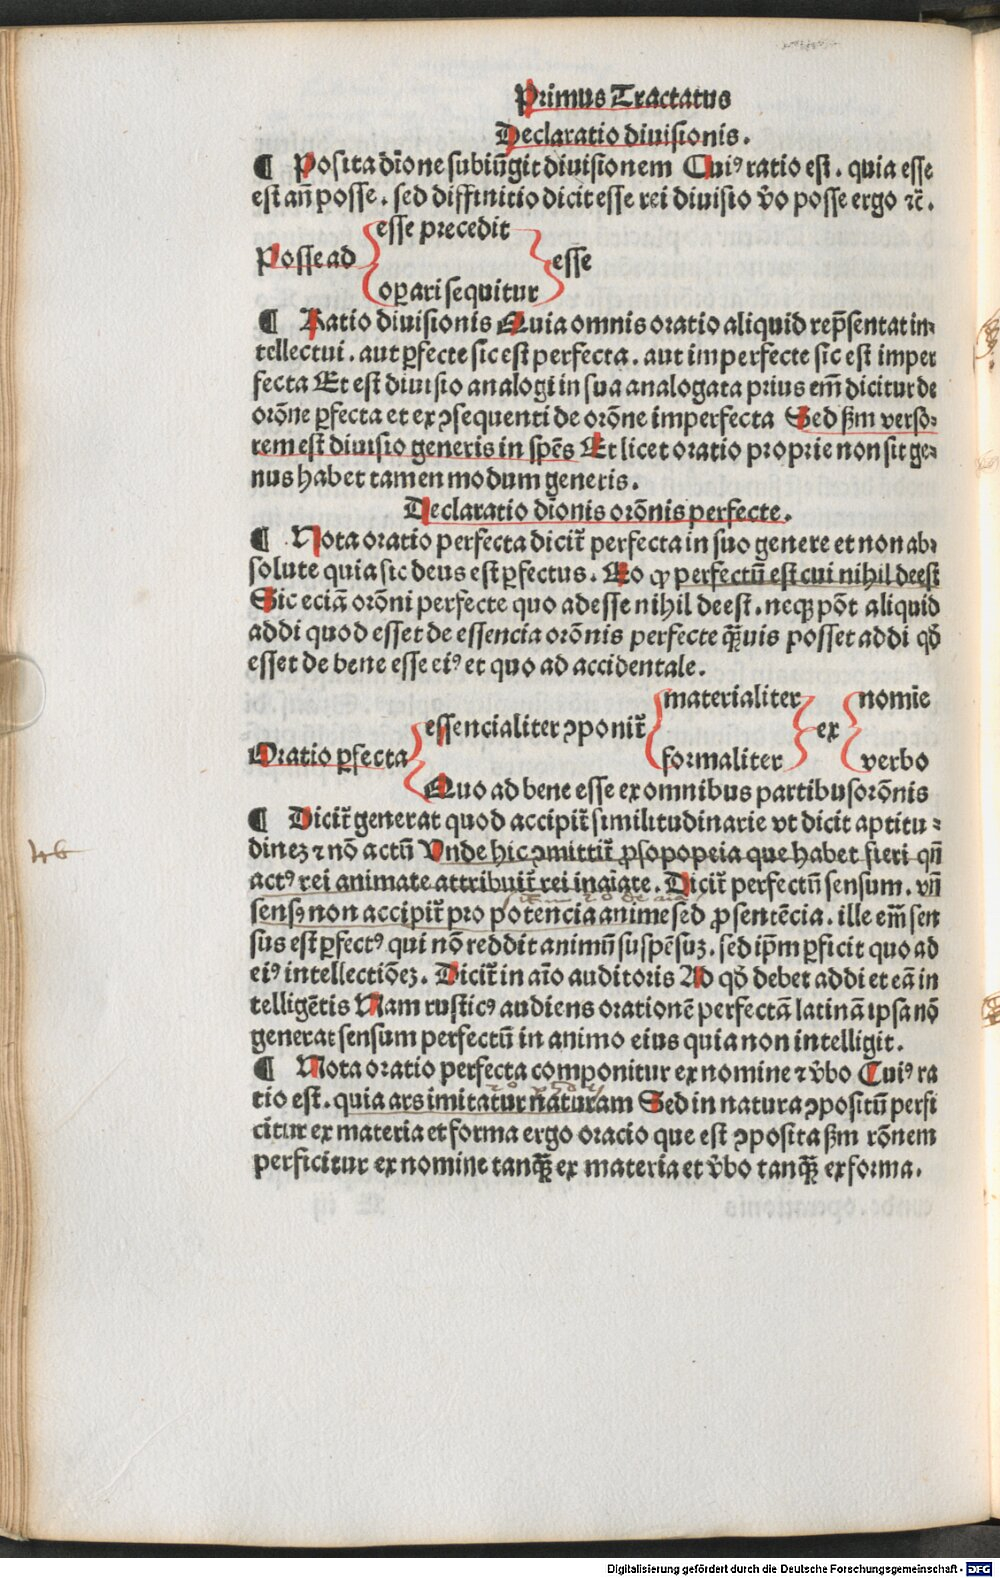 Primus Tractatus
Declaratio diuisionis.
¶ Posita diōne subiūgit diuisionem Cuiꝰ ratio est. quia esse
est añ posse. sed diffinitio dicit esse rei diuisio v̄o posse ergo ⁊c̄.
esse precedit
Posse ad esse
oꝑari sequitur
¶ Ratio diuisionis Quia omnis oratio aliquid rep̄sentat in⸗
tellectui. aut ꝑfecte sic est perfecta. aut imperfecte sic est imper
fecta Et est diuisio analogi in sua analogata prius em̄ dicitur de
orōne ꝑfecta et ex ꝯsequenti de orōne imperfecta Sed ẜm verso⸗
rem est diuisio generis in spēs Et licet oratio proprie non sit ge⸗
nus habet tamen modum generis.
Declaratio diōnis orōnis perfecte.
¶ Nota oratio perfecta dicit̄ perfecta in suo genere et non ab⸗
solute quia sic deus est ꝑfectus. Eo ꝙ perfectū est cui nihil deest
Sic eciā orōni perfecte quo ad esse nihil deest. neqꝫ pōt aliquid
addi quod esset de essencia orōnis perfecte qꝫuis posset addi qđ
esset de bene esse eiꝰ et quo ad accidentale.
materialiter nomīe
essencialiter ꝯponit̄ ex
Oratio ꝑfecta formaliter verbo
Quo ad bene esse ex omnibus partibus orōnis
¶ Dicit̄ generat quod accipit̄ similitudinarie vt dicit aptitu⸗
dinez ⁊ nō actū Vnde hic ꝯmittit̄ ꝓsopopeia que habet fieri qn̄
actꝰ rei animate attribuit̄ rei inaīate. Dicit̄ perfectū sensum. vn̄
sensꝰ non accipit̄ pro potencia anime sed ꝓ sentēcia. ille em̄ sen
sus est ꝑfectꝰ qui nō reddit animū suspēsuꝫ. sed ip̄m ꝑficit quo ad
eiꝰ intellectiōeꝫ. Dicit̄ in aīo auditoris Ad qđ debet addi et eā in
telligētis Nam rusticꝰ audiens orationē perfectā latinā ipsa nō
generat sensum perfectū in animo eius quia non intelligit.
¶ Nota oratio perfecta componitur ex nomine ⁊ v̄bo Cuiꝰ ra
tio est. quia ars imitatur naturam Sed in natura ꝯpositū perfi
citur ex materia et forma ergo oracio que est ꝯposita ẜm rōnem
perficitur ex nomine tanqꝫ ex materia et v̄bo tanqꝫ ex forma.
Digitalisierung gefördert durch die Deutsche Forschungsgemeinschaft - DFG